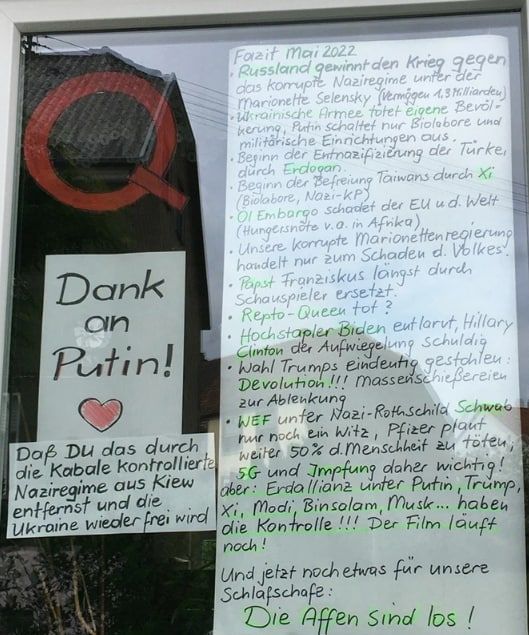 Q
Dank
an
Putin!
Daß Du das durch
die Kabale kontrollierte
Naziregime aus Kiew
entfernst und die
Ukraine wieder frei wird
Fazit Mai 2022
• Russland gewinnt den Krieg gegen
das korrupte Naziregime unter der
Marionette Selensky (Vermögen 1,3 Milliarden)
• Ukrainische Armee tötet eigene Bevöl-
kerung, Putin schaltet nur Biolabore und
militärische Einrichtungen aus.
• Beginn der Entnazifizierung der Türkei
durch Erdogan.
• Beginn der Befreiung Taiwans durch Xi
(Biolabore, Nazi-KP)
• Öl Embargo schadet der EU u d. Welt
(Hungersnöte v.a. in Afrika)
• Unsere korrupte Marionettenregierung
handelt nur zum Schaden d. Volkes.
• Papst Franziskus längst durch
Schauspieler ersetzt.
• Repto-Queen tot?
• Hochstapler Biden entlarvt, Hillary
Clinton der Aufwiegelung schuldig
• Wahl Trumps eindeutig gestohlen:
Devolution!!! Massenschießereien
zur Ablenkung
• WEF unter Nazi-Rothschild Schwab
nur noch ein Witz, Pfizer plant
weiter 50% d. Menschheit zu töten,
5G und Impfung daher wichtig!
aber: Erdallianz unter Putin, Trump,
Xi, Modi, Binsalam, Musk... haben
die Kontrolle!!! Der Film läuft
noch!
Und jetzt noch etwas für unsere
Schlafschafe:
Die Affen sind los!